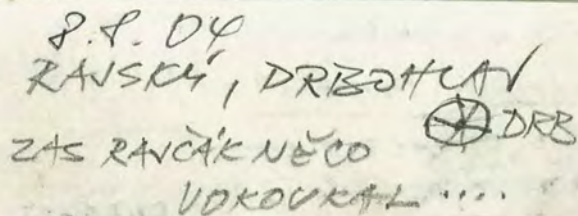 8.8.04
RAJSKÝ, DRBOHLAV
DRB
ZAS RAVČÁK NĚCO
VOKOUKAL ....